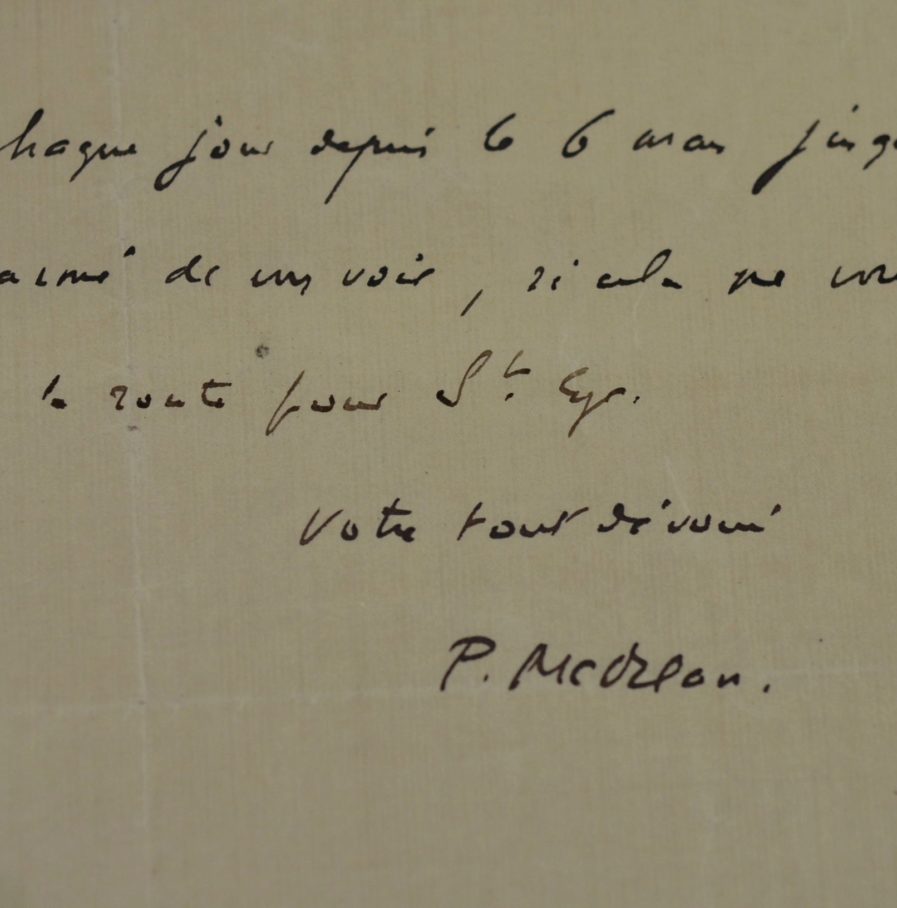 haque jour depuis le 6 mars jusq
de vous voir, si cela ne vou
la route pour St Cyr.
Votre tout dévoué
P. Mac Orlan.